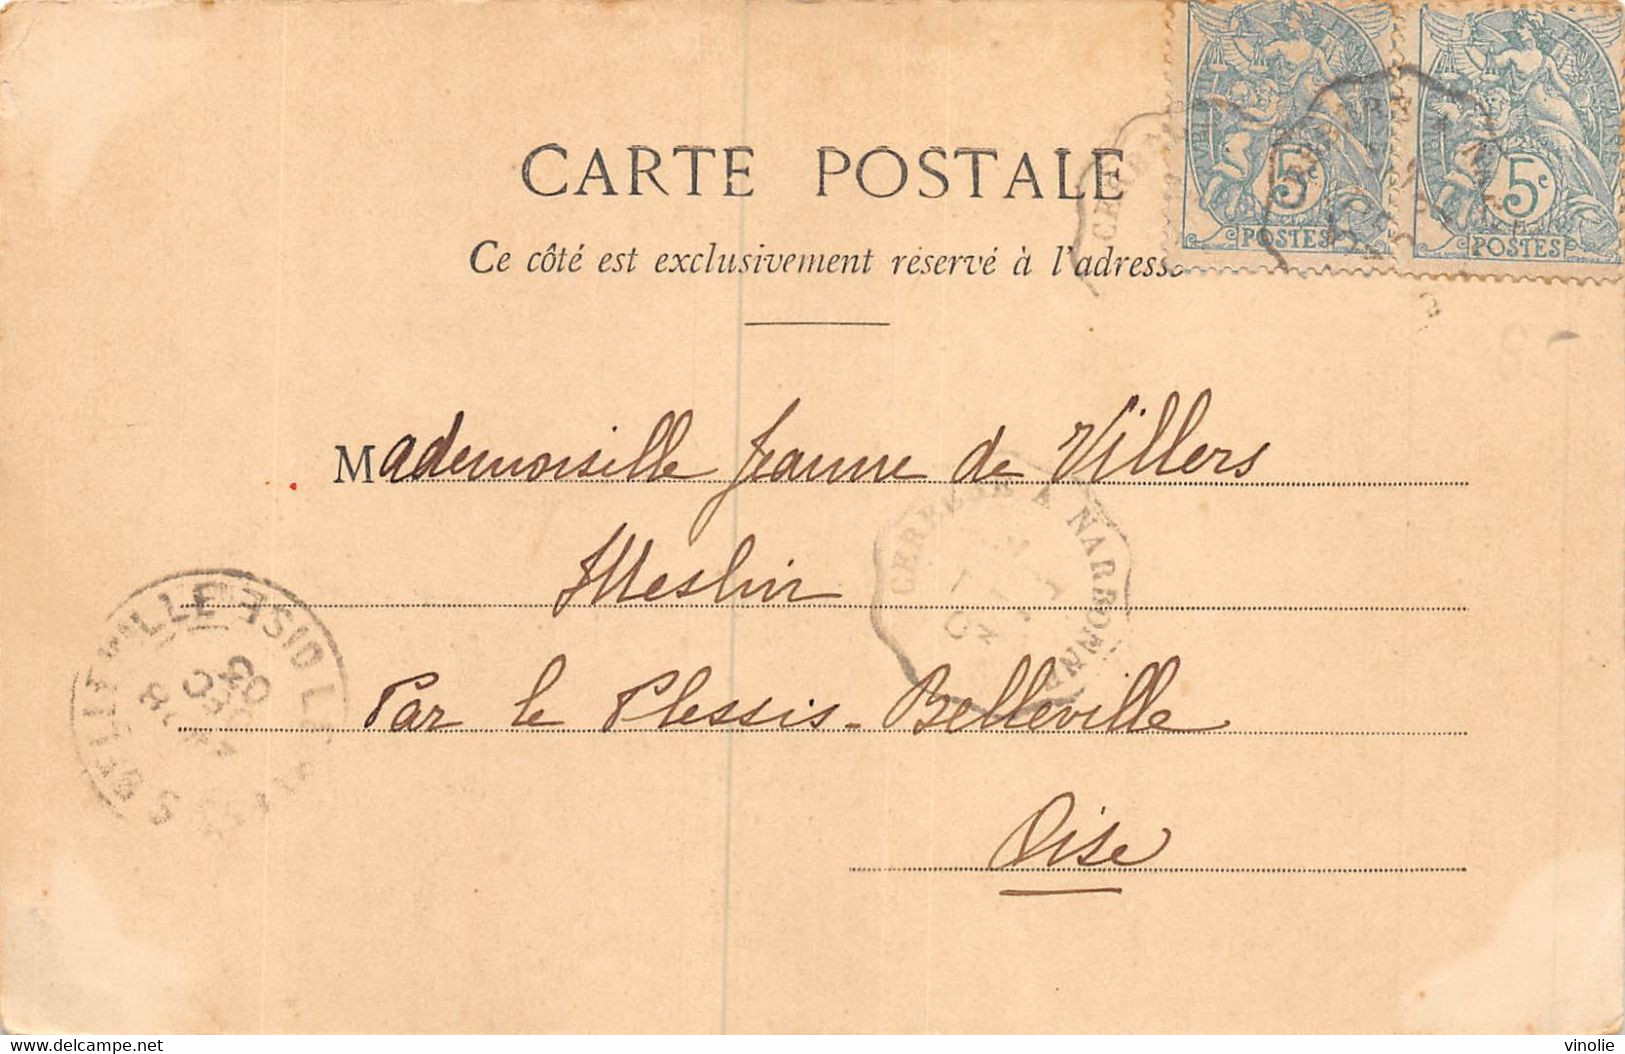 CARTE POSTALE
Ce côté est exclusivement réservé à l'adresse
5c
POSTES
5c
POSTES
Mademoiselle Jeanne de Villers
CERBERE A NARBONNE
Par le Plessis-Belleville
OISE
03
Oise
delcampe.net
vinolie